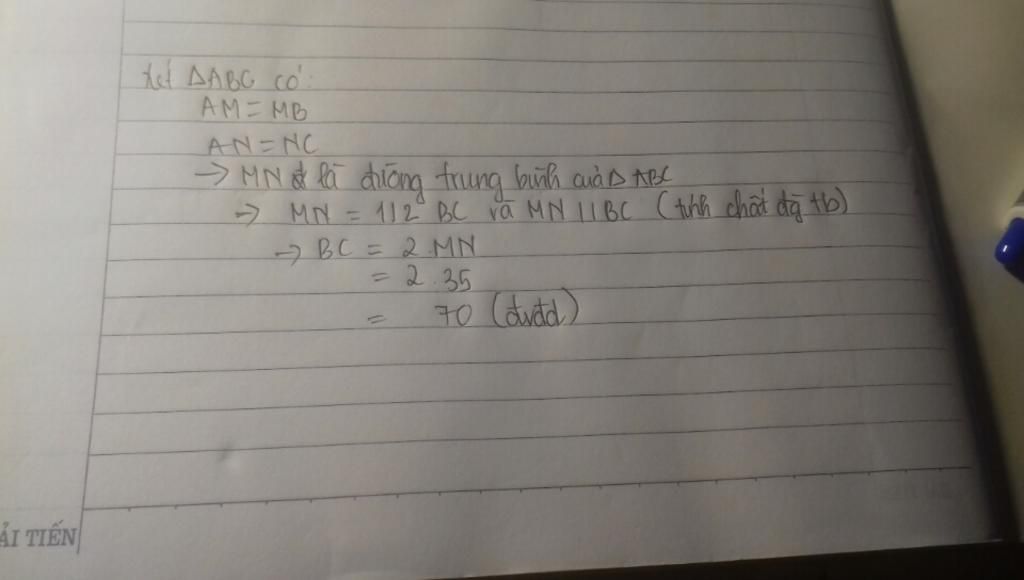 Xét ΔABC có:
AM = MB
AN = NC
→ MN là đường trung bình của Δ ABC
→ MN = 1/2 BC và MN // BC (tính chất đg tb)
→ BC = 2.MN
= 2.35
= 70 (đvđd)
ẢI TIẾN